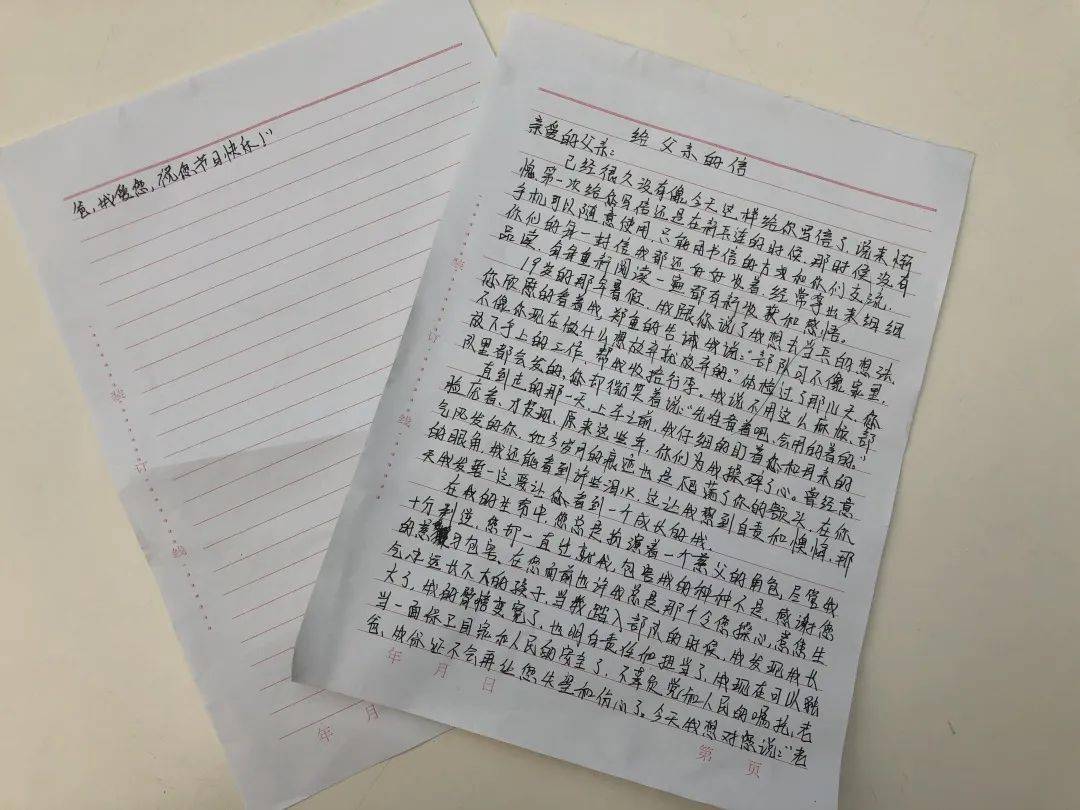 给父亲的信
亲爱的父亲：
已经很久没有像今天这样给你写信了，说来惭
愧，第一次给你写信还是在新兵连的时候，那时候没有
手机可以随意使用，只能用书信的方式和你们交流。
你们的每一封信我都还好好收着，经常拿出来细细
品读，每每重新阅读一遍都有新收获和感悟。
19岁的那年暑假，我跟你说了我想去当兵的想法，
你欣慰的看着我，郑重的告诫我说：“部队可不像家里，
不像你现在做什么想放弃就放弃的。”体检过了那几天，你
放下手上的工作，帮我收拾行李。我说不用这么麻烦，部
队里都会发的，你却微笑着说：“先准备着吧，会用的着的。”
直到走的那一天，上车之前，我仔细的盯着你和母亲的
脸庞看，才发现，原来这些年，你们为我操碎了心。曾经意
气风发的你，如今岁月的痕迹也是爬满了你的额头，在你
的眼角，我还能看到许些泪水，这让我想到自责和懊悔，那
天我发誓一定要让你看到一个成长的我。
在我的生命中，您总是扮演着一个慈父的角色，尽管我
十分叛逆，您却一直迁就我，包容我的种种不是，感谢您
的宽容，在您面前也许我总是那个令您操心，惹您生
气，永远长不大的孩子，当我踏入部队的时候，我发现我长
大了，我的臂膀变宽了，也明白责任和担当了，我现在可以独
当一面保卫国家和人民的安全了，不辜负党和人民的嘱托，老
爸，我保证不会再让您失望和伤心了。今天我想对您说：“老
爸，我爱您，祝您节日快乐！”
年 月 日
第 页
装
订
线
年 月
装
订
线